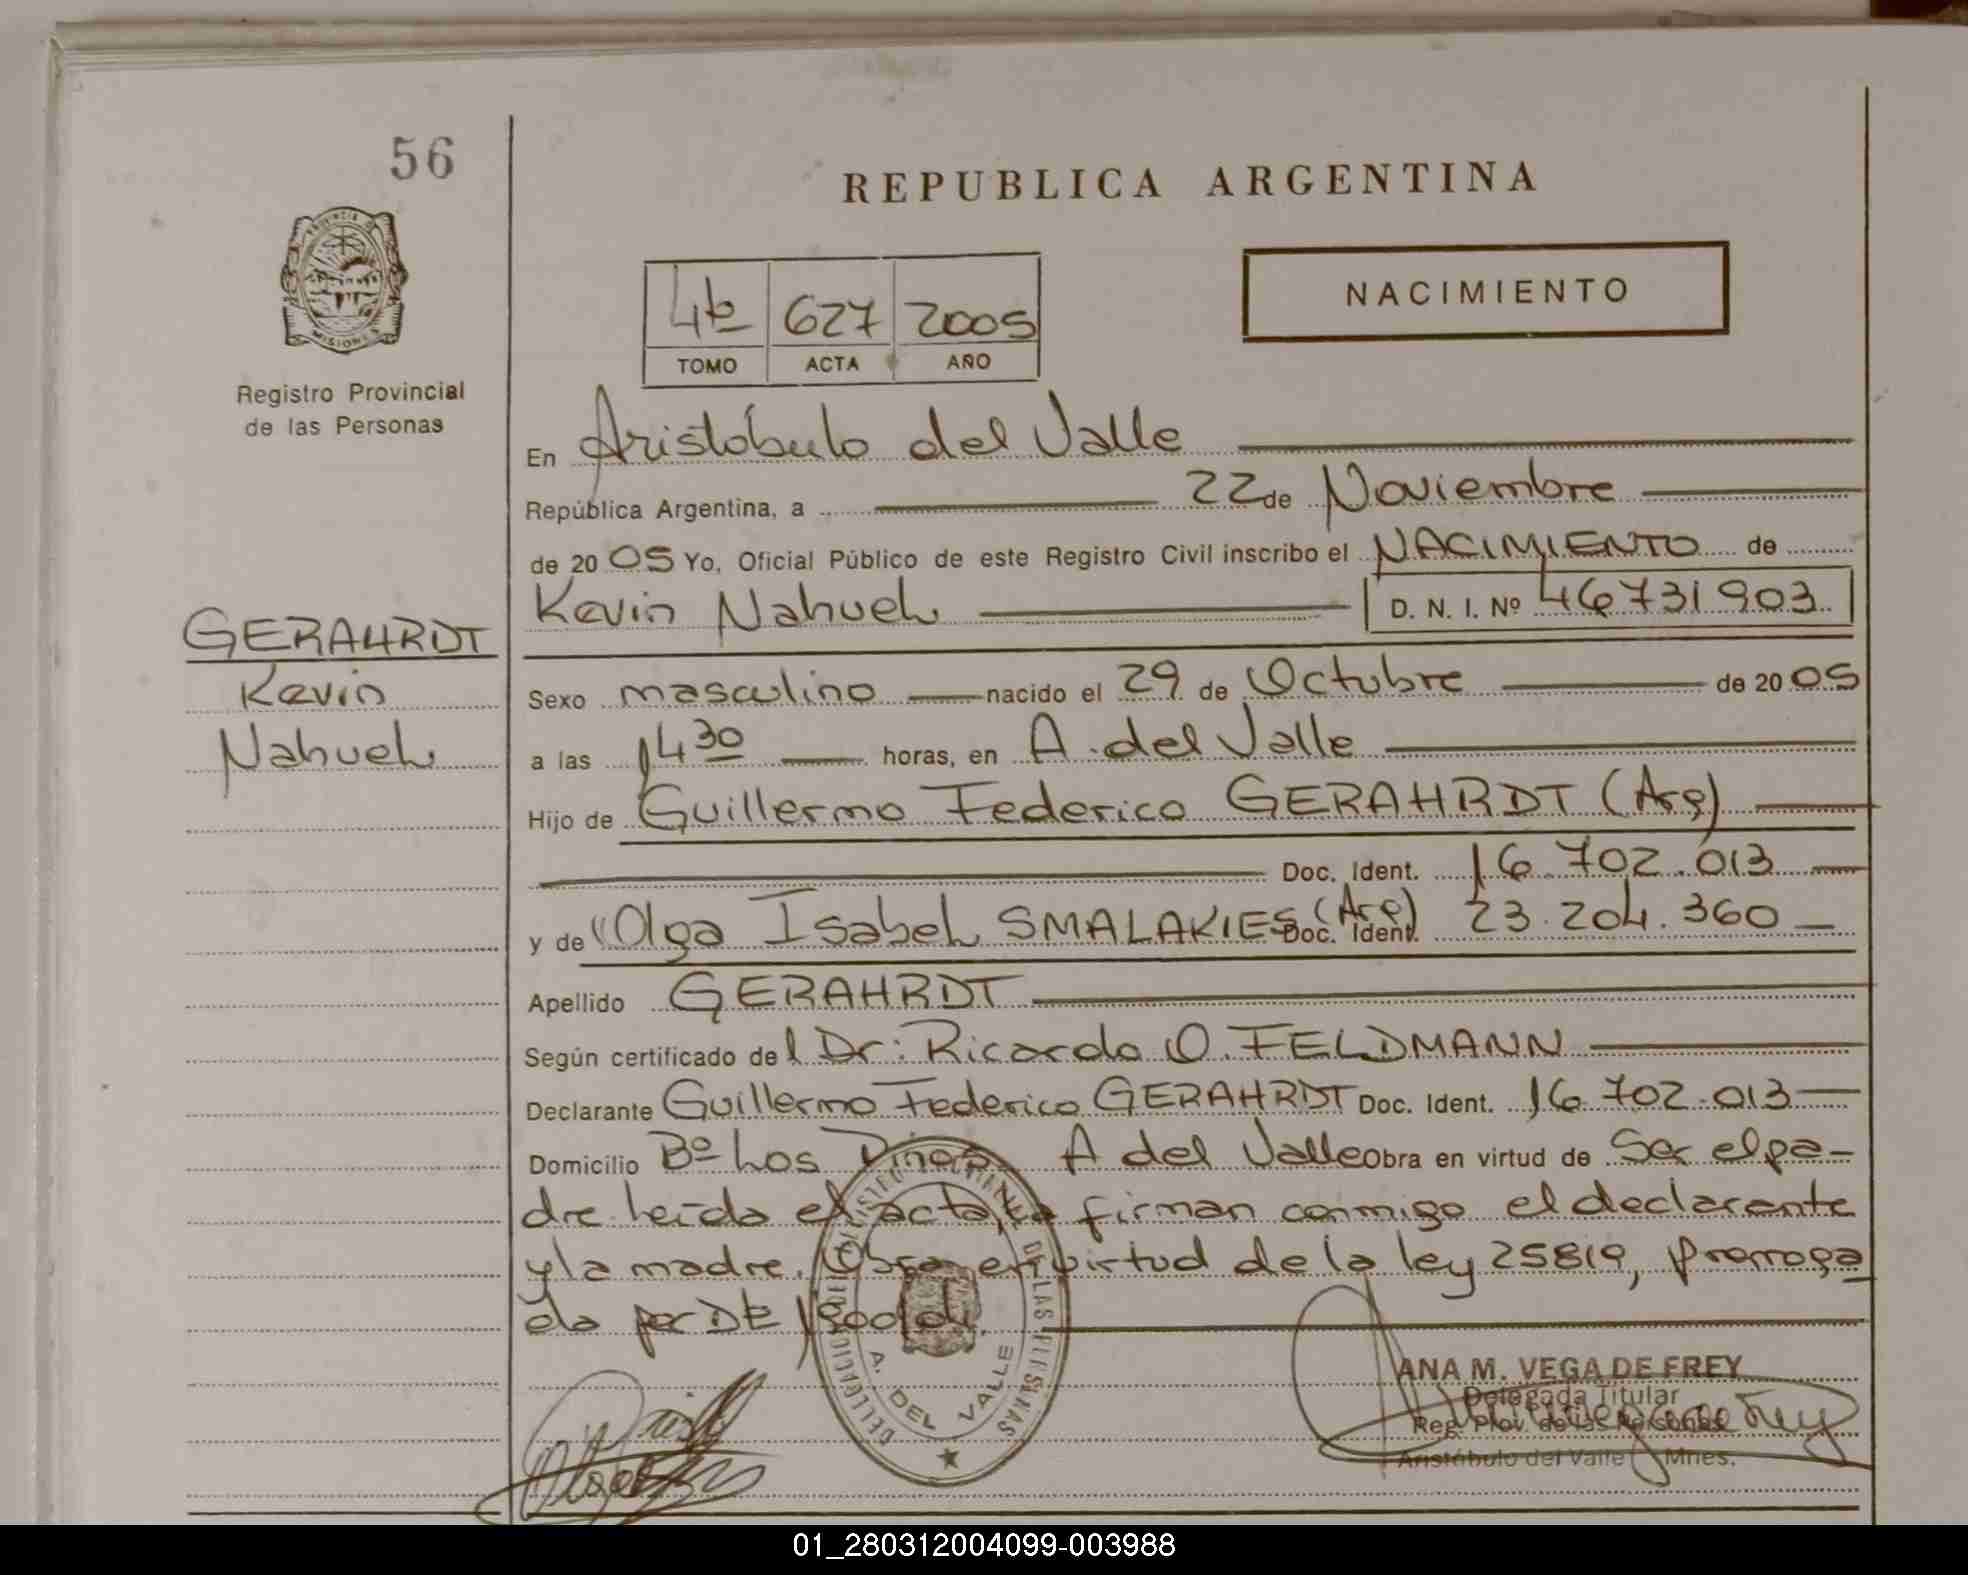 56
REPUBLICA ARGENTINA
PROVINCIA DE MISIONES
Registro Provincial
de las Personas
NACIMIENTO
4to 627 2005
TOMO ACTA AÑO
En Aristóbulo del Valle
República Argentina, a 22 de Noviembre
de 20 05 Yo, Oficial Público de este Registro Civil inscribo el NACIMIENTO de
Kevin Nahuel D. N. I. Nº 46731903
GERAHRDT
Kevin
Nahuel
Sexo masculino nacido el 29 de Octubre de 20 05
a las 14 30 horas, en A. del Valle
Hijo de Guillermo Federico GERAHRDT (Arg)
Doc. Ident. 16.702.013
y de Olga Isabel SMALAKIES (Arg) Doc. Ident. 23.204.360
Apellido GERAHRDT
Según certificado del Dr: Ricardo O. FELDMANN
Declarante Guillermo Federico GERAHRDT Doc. Ident. 16.702.013
Domicilio Bº Los Pinos A del Valle Obra en virtud de Ser el pa-
dre leida el acta, la firman conmigo el declarante
y la madre. Obra en virtud de la ley 25819, prorroga
da por
DELEGACION DEL REGISTRO PROVINCIAL DE LAS PERSONAS
A. DEL VALLE
ANA M. VEGA DE FREY
Delegada Titular
Reg. Prov. de las Personas
Aristóbulo del Valle Mnes.
01_280312004099-003988